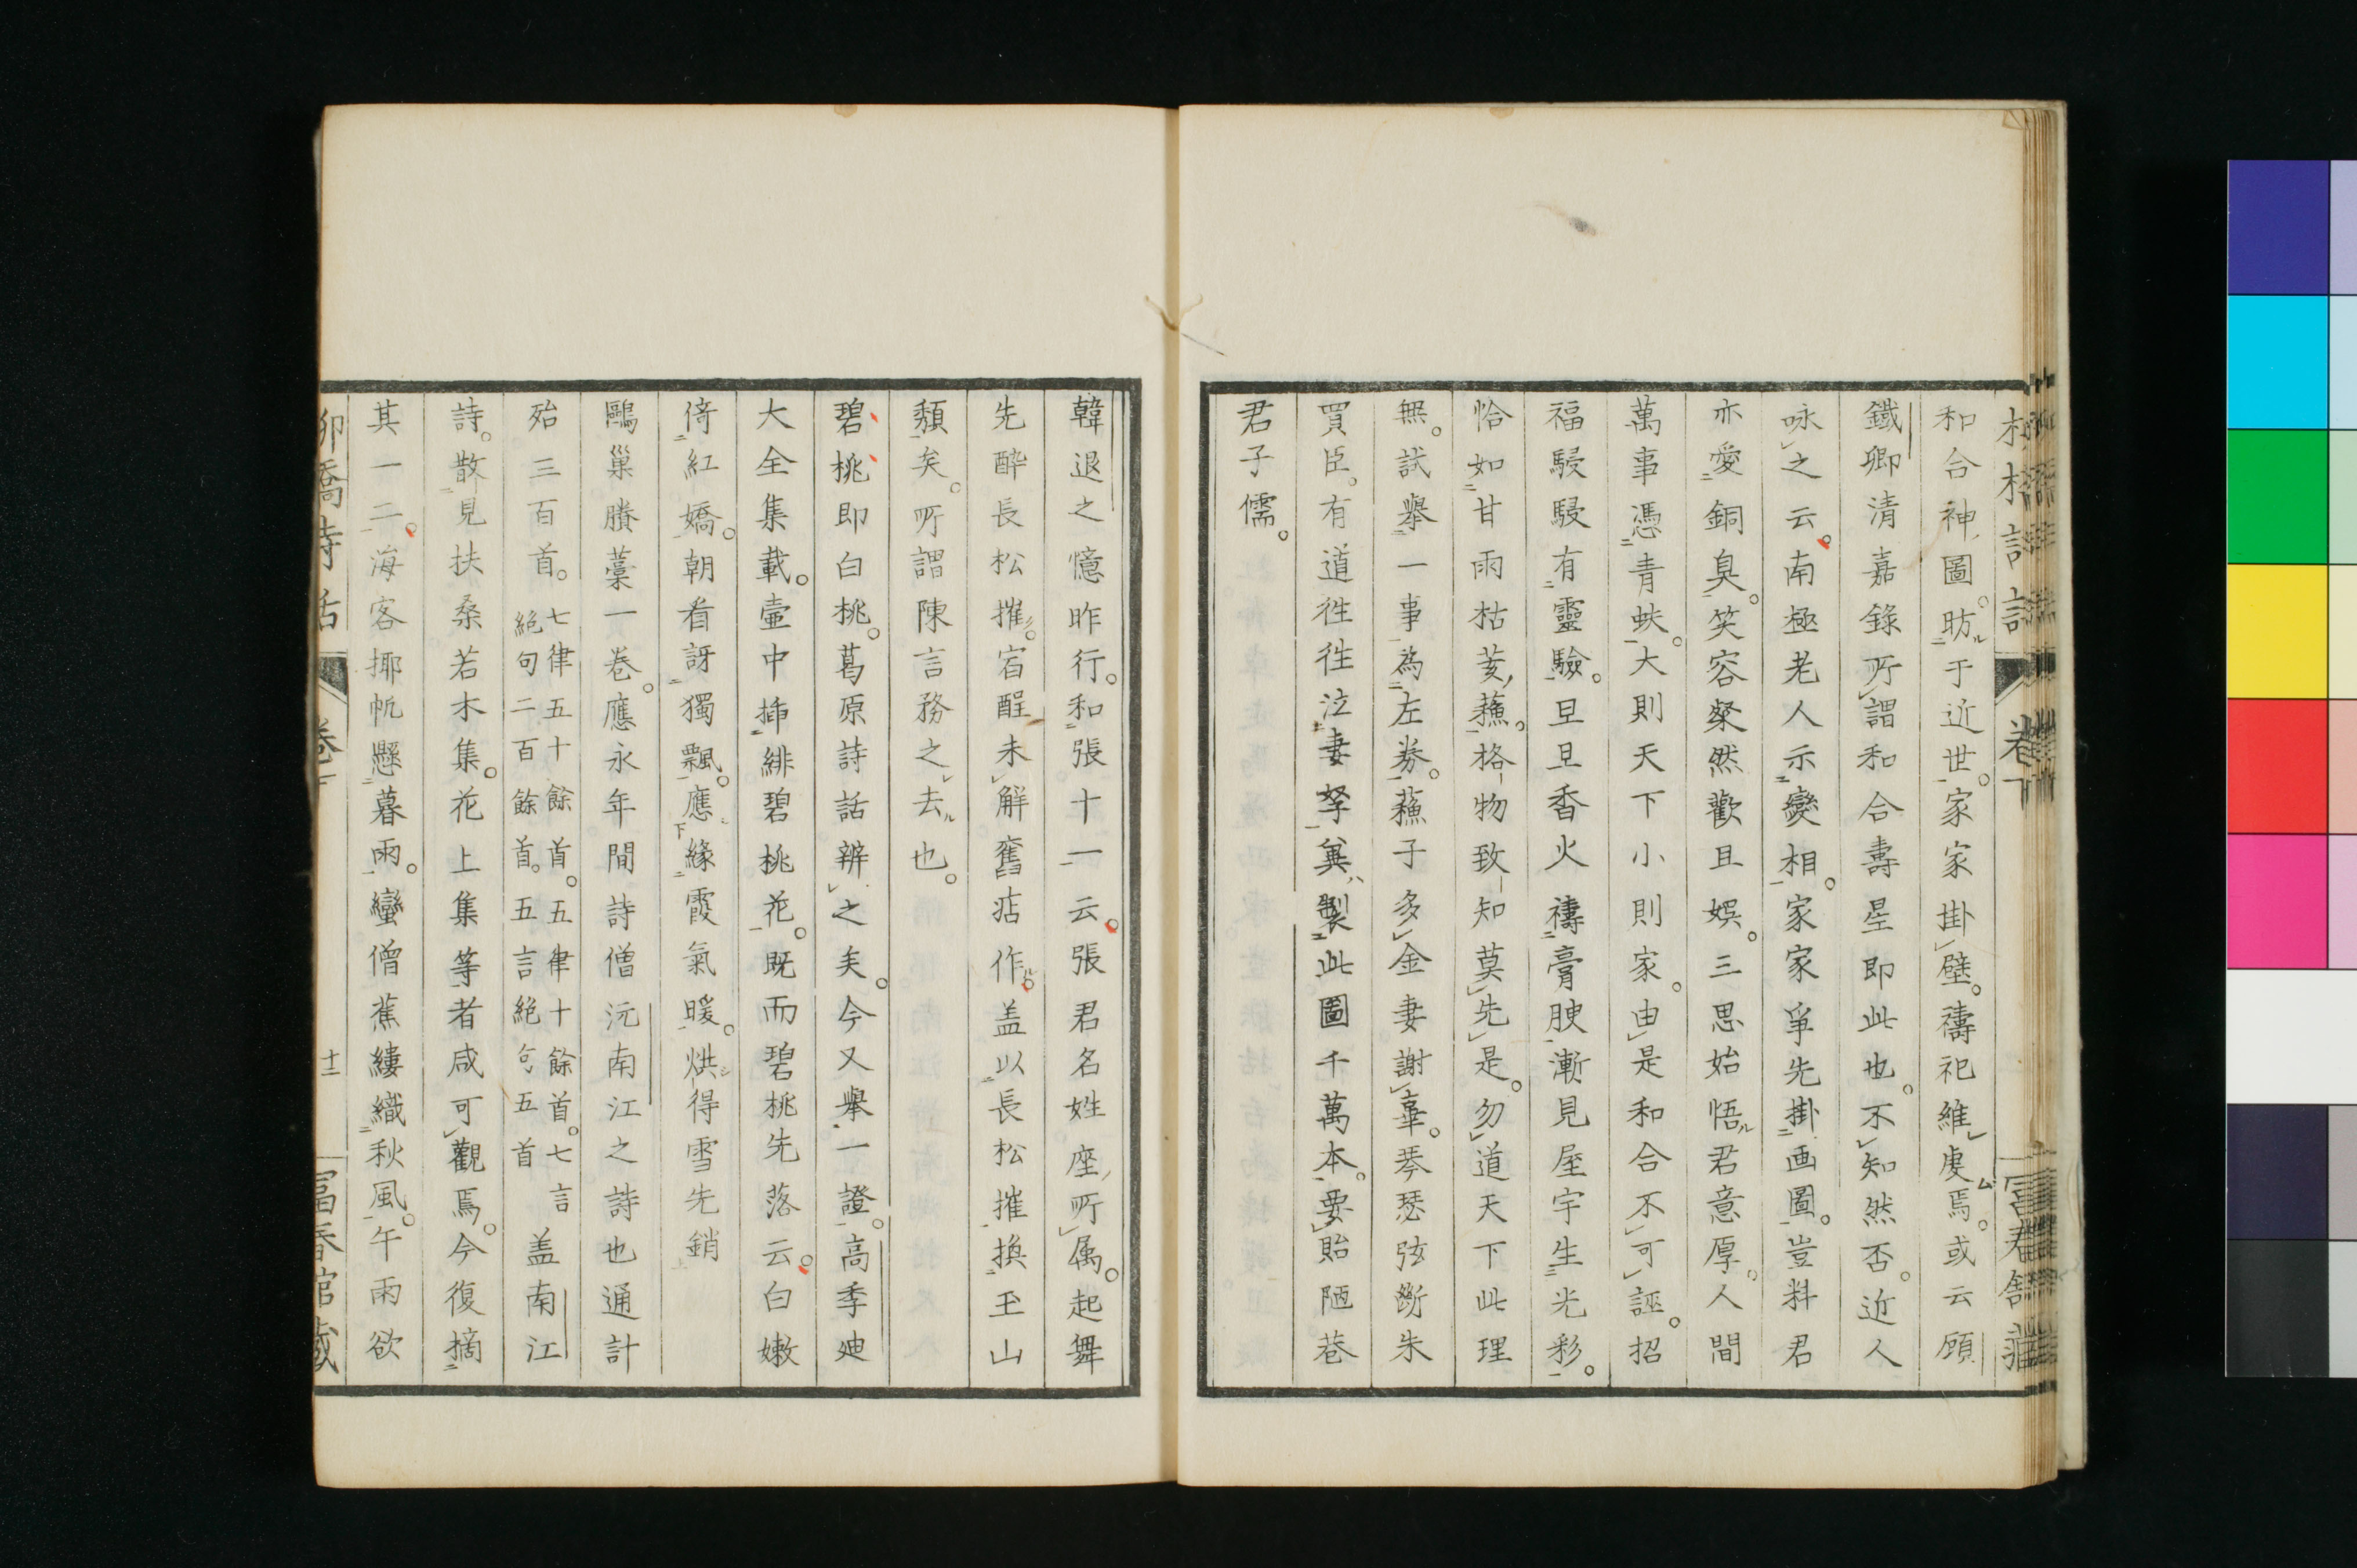 和合神圖。昉于近世。家家掛壁。禱祀維虔焉。或云顧
鐵卿清嘉錄所謂和合壽星即此也。不知然否。近人
咏之云。南極老人示變相。家家爭先掛画圖。豈料君
亦愛銅臭。笑容粲然歡且娯。三思始悟君意厚。人間
萬事憑青蚨。大則天下小則家。由是和合不可誣。招
福駸駸有靈驗。旦旦香火禱膏腴。漸見屋宇生光彩。
恰如甘雨枯荄蘓。格物致知莫先是。勿道天下此理
無。試舉一事為左券。蘓子多金妻謝辜。琴瑟弦斷朱
買臣。有道往往泣妻孥。爰製此圖千萬本。要貽陋巷
君子儒。
韓退之憶昨行。和張十一云。張君名姓座所属。起舞
先醉長松摧。宿酲未解舊痁作。盖以長松摧換玉山
頽矣。所謂陳言務之去也。
碧桃即白桃。葛原詩話辨之矣。今又舉一證。高季廸
大全集載。壷中揷緋碧桃花。既而碧桃先落云。白嫩
倚紅嬌。朝看訝獨飄。應緣霞氣暖。烘得雪先銷
鷗巢賸藁一卷。應永年間詩僧沅南江之詩也通計
殆三百首。七律五十餘首。五律十餘首。七言絶句二百餘首。五言絶句五首盖南江
詩。散見扶桑若木集。花上集等者咸可觀焉。今復摘
其一二。海客揶帆懸暮雨。蠻僧蕉縷織秋風。午雨欲